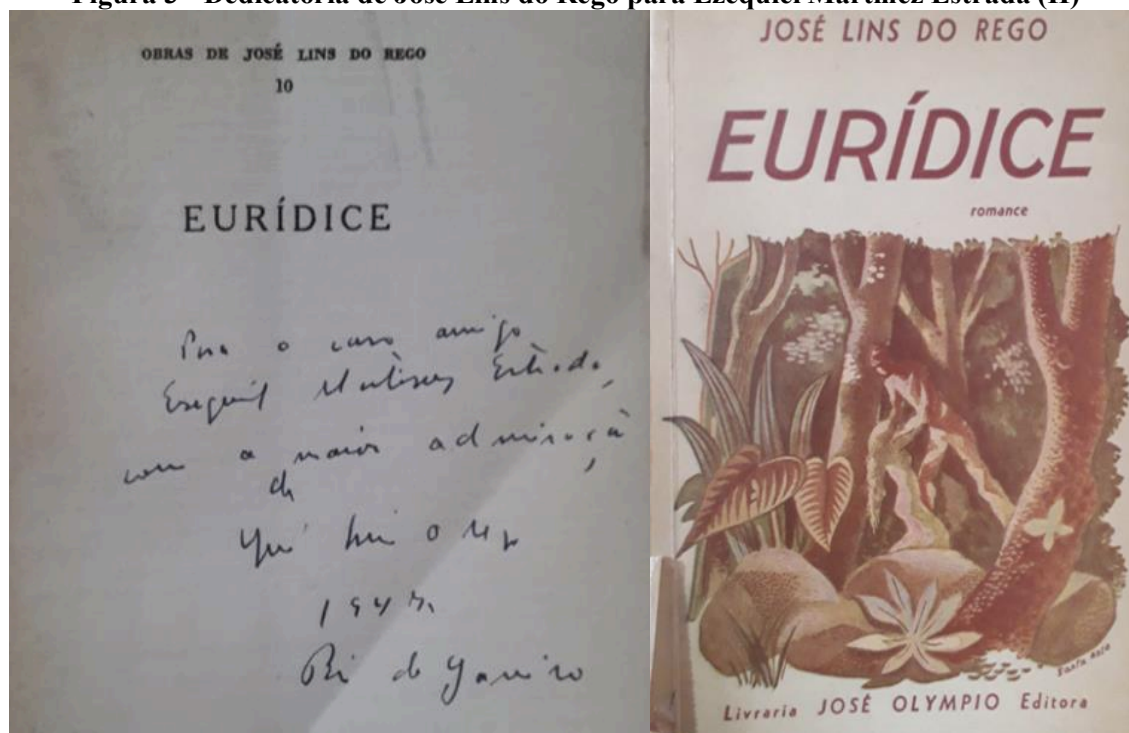 Figura 3 - Dedicatória de José Lins do Rego para Ezequiel Martínez Estrada (II)
OBRAS DE JOSÉ LINS DO REGO
10
EURÍDICE
Para o caro amigo
Ezequiel Martinez Estrada,
com a maior admiração
de
José Lins o Rego
Rio de Janeiro
JOSÉ LINS DO REGO
EURÍDICE
romance
SANTA ROSA
Livraria JOSÉ OLYMPIO Editora